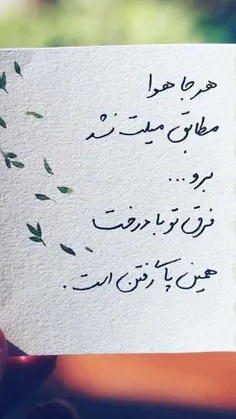 هر جا هوا
مطابق میلت نشد
برو...
فرق تو با درخت
همین پا گرفتن است.